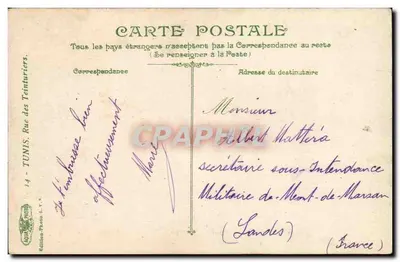 CARTE POSTALE
Tous les pays étrangers n'acceptent pas la Correspondance au recto
(Se renseigner à la Poste)
Correspondance
Adresse du destinataire
14 - TUNIS. Rue des Teinturiers.
Je t'embrasse bien
affectueusement
Marie
Monsieur
secrétaire sous-Intendance
Militaire de Mont-de-Marsan
(Landes)
(France)